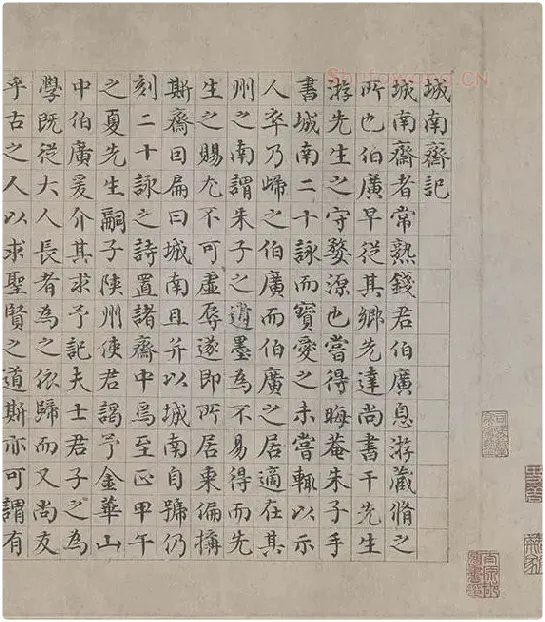 城南齋記
城南齋者常熟錢君伯廣息游藏脩之
所也伯廣早從其鄉先達尚書干先生
游先生之守婺源也嘗得晦菴朱子手
書城南二十詠而寶愛之未嘗輒以示
人卒乃歸之伯廣而伯廣之居適在其
州之南謂朱子之遺墨為不易得而先
生之賜尤不可虛辱遂即所居東偏搆
斯齋因扁曰城南且并以城南自號仍
刻二十詠之詩置諸齋中焉至正甲午
之夏先生嗣子陝州使君謁予金華山
中伯廣爰介其求予記夫士君子之為
學既從大人長者為之依歸而又尚友
乎古之人以求聖賢之道斯亦可謂有